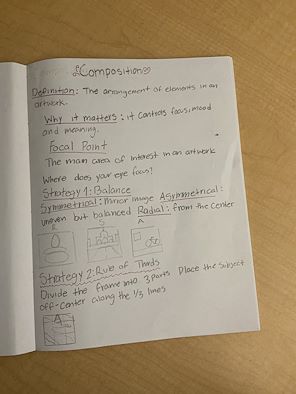 Composition
Definition: The arrangement of elements in an
artwork.
Why it matters: it controls focus, mood
and meaning.
Focal Point
The main area of interest in an artwork
Where does your eye focus?
Strategy 1: Balance
Symmetrical: mirror image Asymmetrical:
uneven but balanced Radial: from the center
Strategy 2: Rule of Thirds
Divide the frame into 3 parts Place the subject
off-center along the 1/3 lines